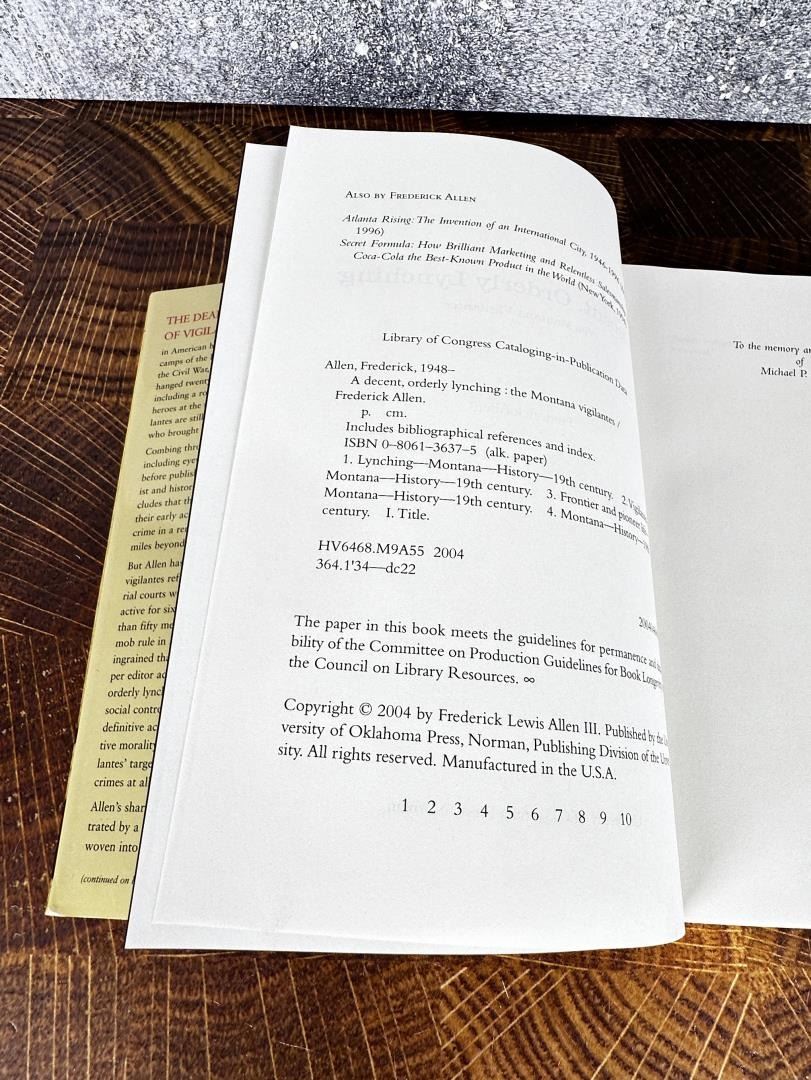 ALSO BY FREDERICK ALLEN
Atlanta Rising: The Invention of an International City, 1946–1996
1996)
Secret Formula: How Brilliant Marketing and Relentless Salesmanship
Coca-Cola the Best-Known Product in the World (New York,
Library of Congress Cataloging-in-Publication Data
Allen, Frederick, 1948–
A decent, orderly lynching : the Montana vigilantes /
Frederick Allen.
p. cm.
Includes bibliographical references and index.
ISBN 0–8061–3637–5 (alk. paper)
1. Lynching—Montana—History—19th century. 2. Vigilantes
Montana—History—19th century. 3. Frontier and pioneer life
Montana—History—19th century. 4. Montana—History—19th
century. I. Title.
HV6468.M9A55 2004
364.1'34—dc22
The paper in this book meets the guidelines for permanence and
bility of the Committee on Production Guidelines for Book Longevity
the Council on Library Resources. ∞
Copyright © 2004 by Frederick Lewis Allen III. Published by the
versity of Oklahoma Press, Norman, Publishing Division of the
sity. All rights reserved. Manufactured in the U.S.A.
1 2 3 4 5 6 7 8 9 10
THE DEA
OF VIGIL
in American
camps of the
the Civil War,
hanged twen
including a ro
heroes at the
lantes are still
who brought
Combing thr
including eye
before publis
ist and histor
cludes that th
their early ac
crime in a re
miles beyond
But Allen ha
vigilantes ref
rial courts w
active for six
than fifty me
mob rule in
ingrained tha
per editor ac
orderly lynch
social contro
definitive ac
tive morality
lantes' targe
crimes at all
Allen's shar
trated by a
woven into
(continued on
To the memory
of
Michael P.